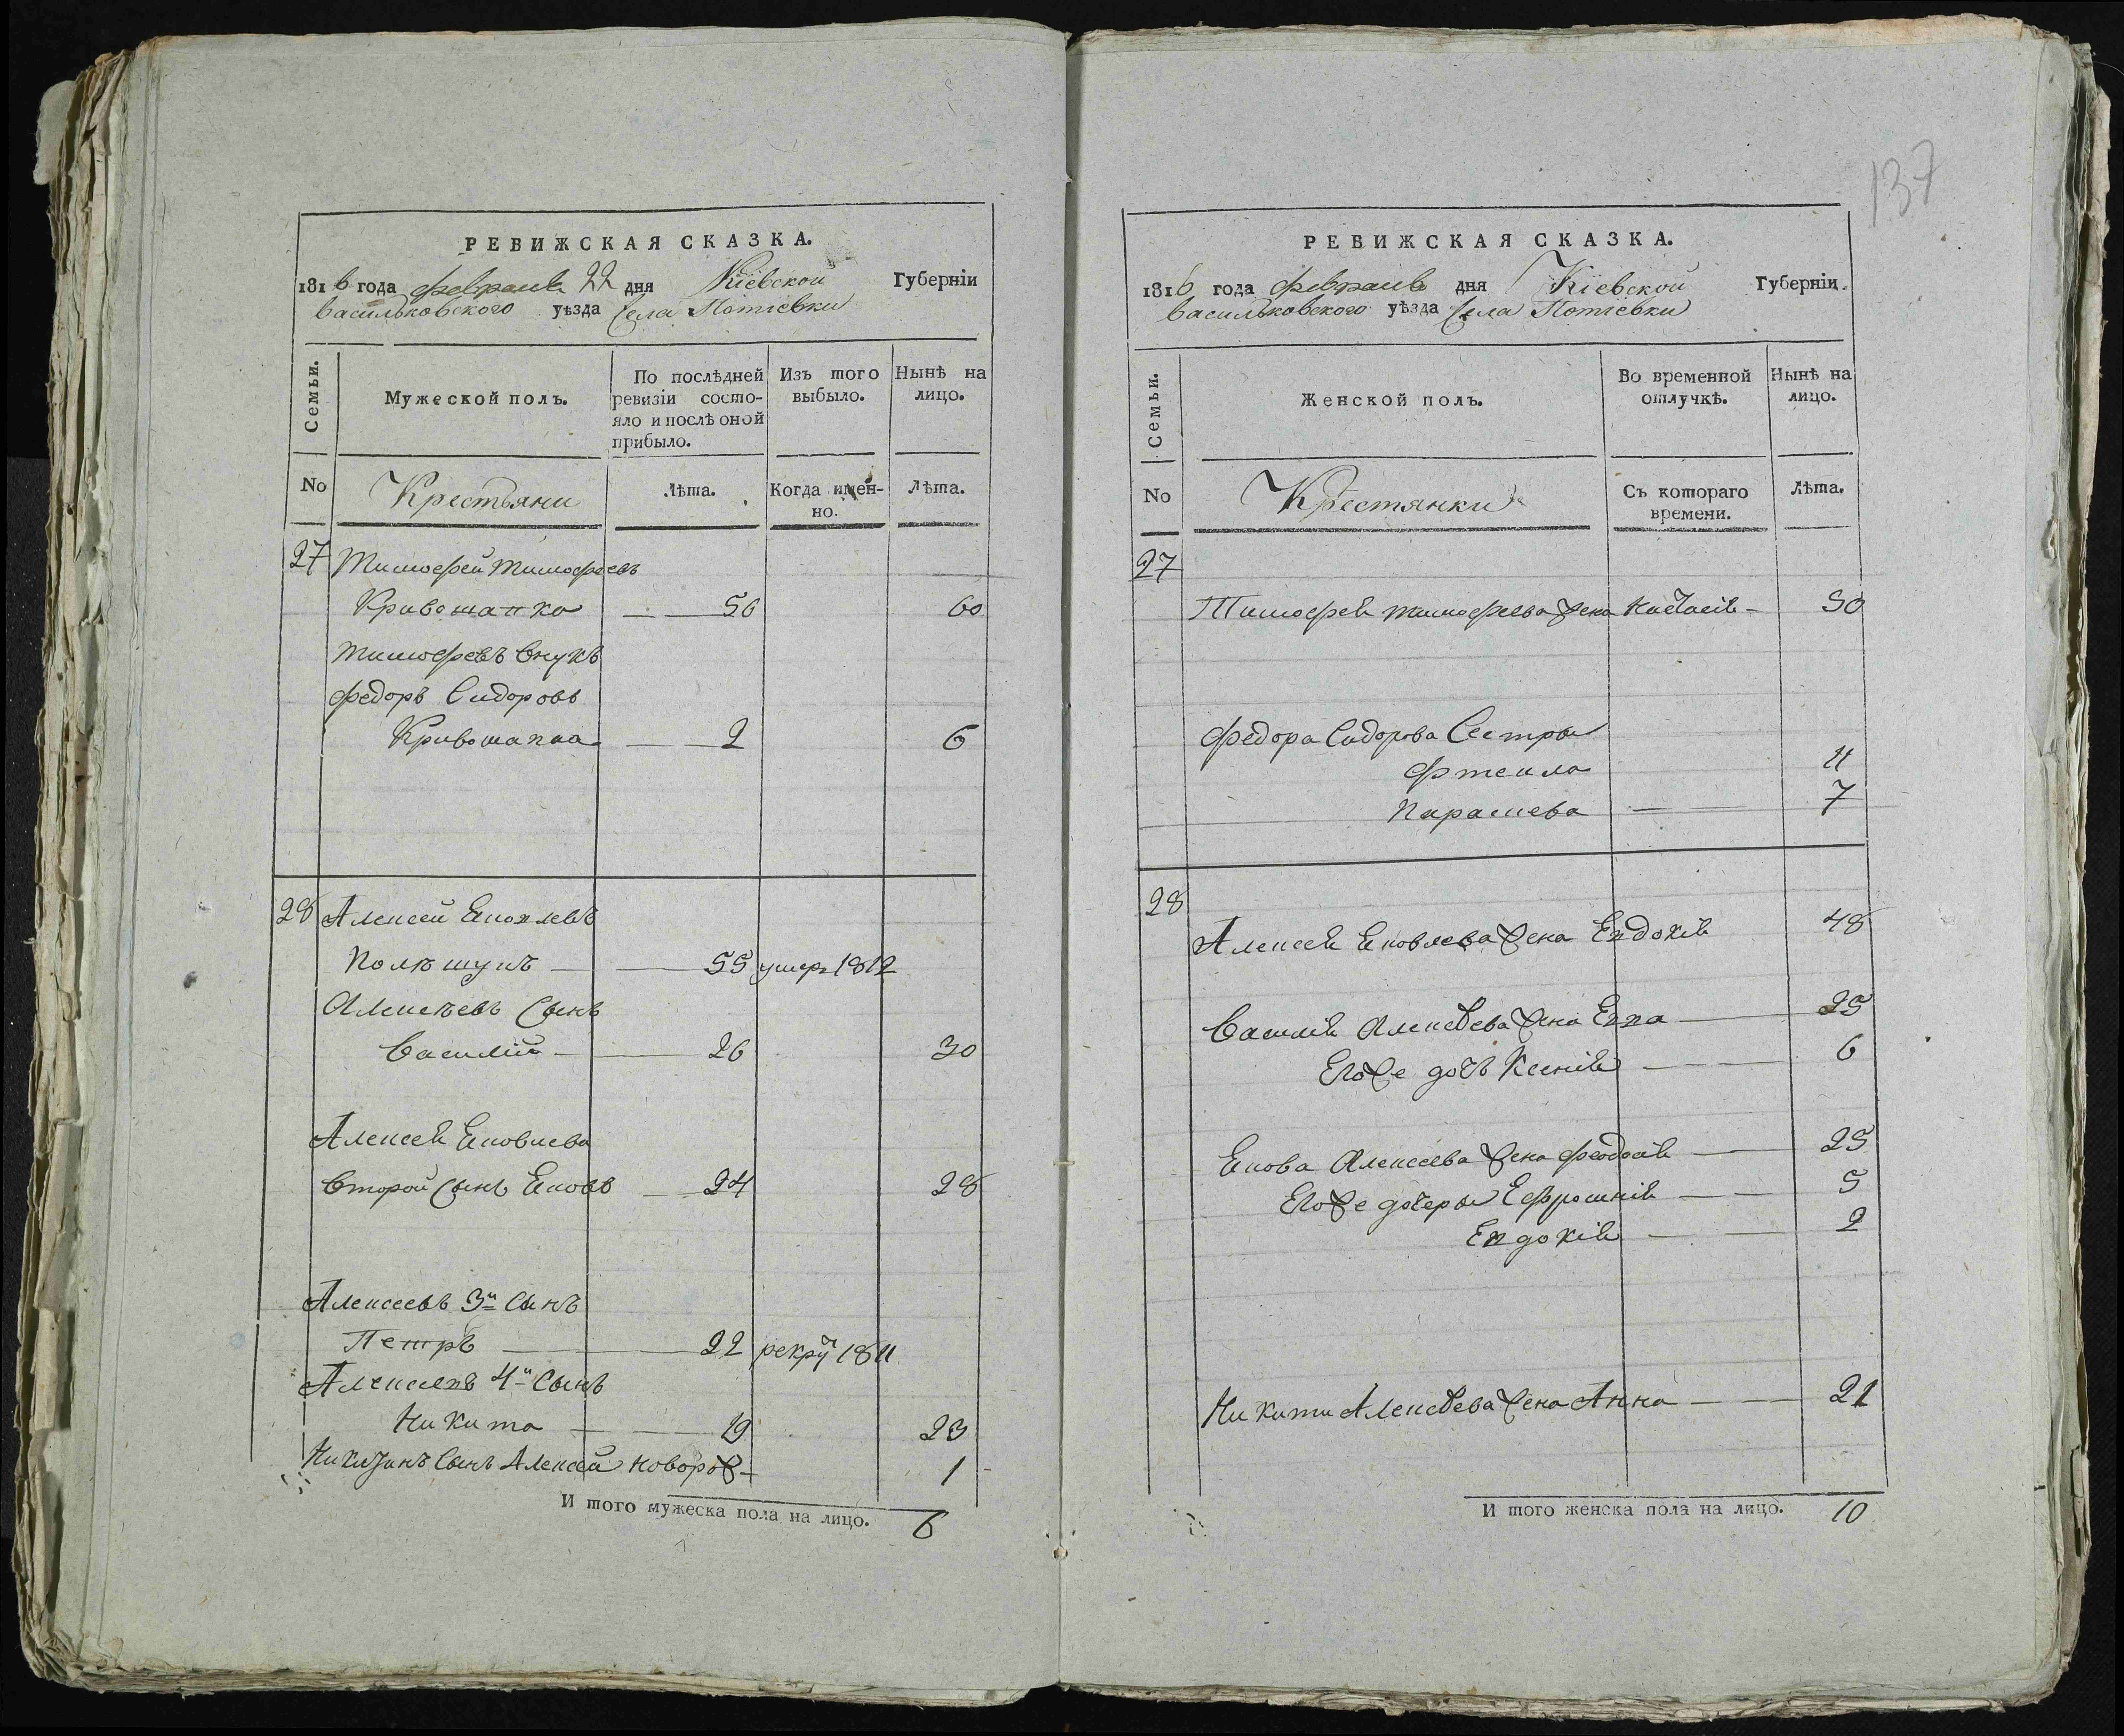 137
РЕВИЖСКАЯ СКАЗКА.
1816 года февраля 22 дня Кіевской Губерніи
Васильковского уѣзда Села Потіевки
Семьи.
Мужеской полъ.
По послѣдней ревизіи состо-
яло и послѣ оной
прибыло.
Изъ того
выбыло.
Нынѣ на
лицо.
No
Крестьяни
Лѣта.
Когда имен-
но.
Лѣта.
27 Тимофей Тимофеевъ
Кривошапка 56 60
Тимофевъ внукъ
Федоръ Сидоровъ
Кривошапка 2 6
28 Алексей Яковлевъ
Полѣшукъ 55 умеръ 1812
Алексѣевъ сынъ
Василій 26 30
Алексея Яковлева
второй сынъ Яковъ 24 28
Алексеевъ 3й сынъ
Петръ 22 рекрут 1811
Алексеевъ 4й сынъ
Никита 19 23
Никитинъ сынъ Алексей новорож 1
И того мужеска пола на лицо. 6
РЕВИЖСКАЯ СКАЗКА.
1816 года февраля дня Кіевской Губерніи.
Васильковского уѣзда Села Потіевки
Семьи.
Женской полъ.
Во временной
отлучкѣ.
Нынѣ на
лицо.
No
Крестянки
Съ котораго
времени.
Лѣта.
27
Тимофея Тимофеева жена Настасія 50
Федора Сидорова Сестры
11
Параскева 7
28
Алексея Яковлева жена Евдокія 48
Василія Алексеева жена Евва 25
Его же дочь Ксенія 6
Якова Алексеева жена Феодосія 25
Его же дочеры Ефросинія 5
Евдокія 2
Никити Алексеева жена Анна 21
И того женска пола на лицо. 10